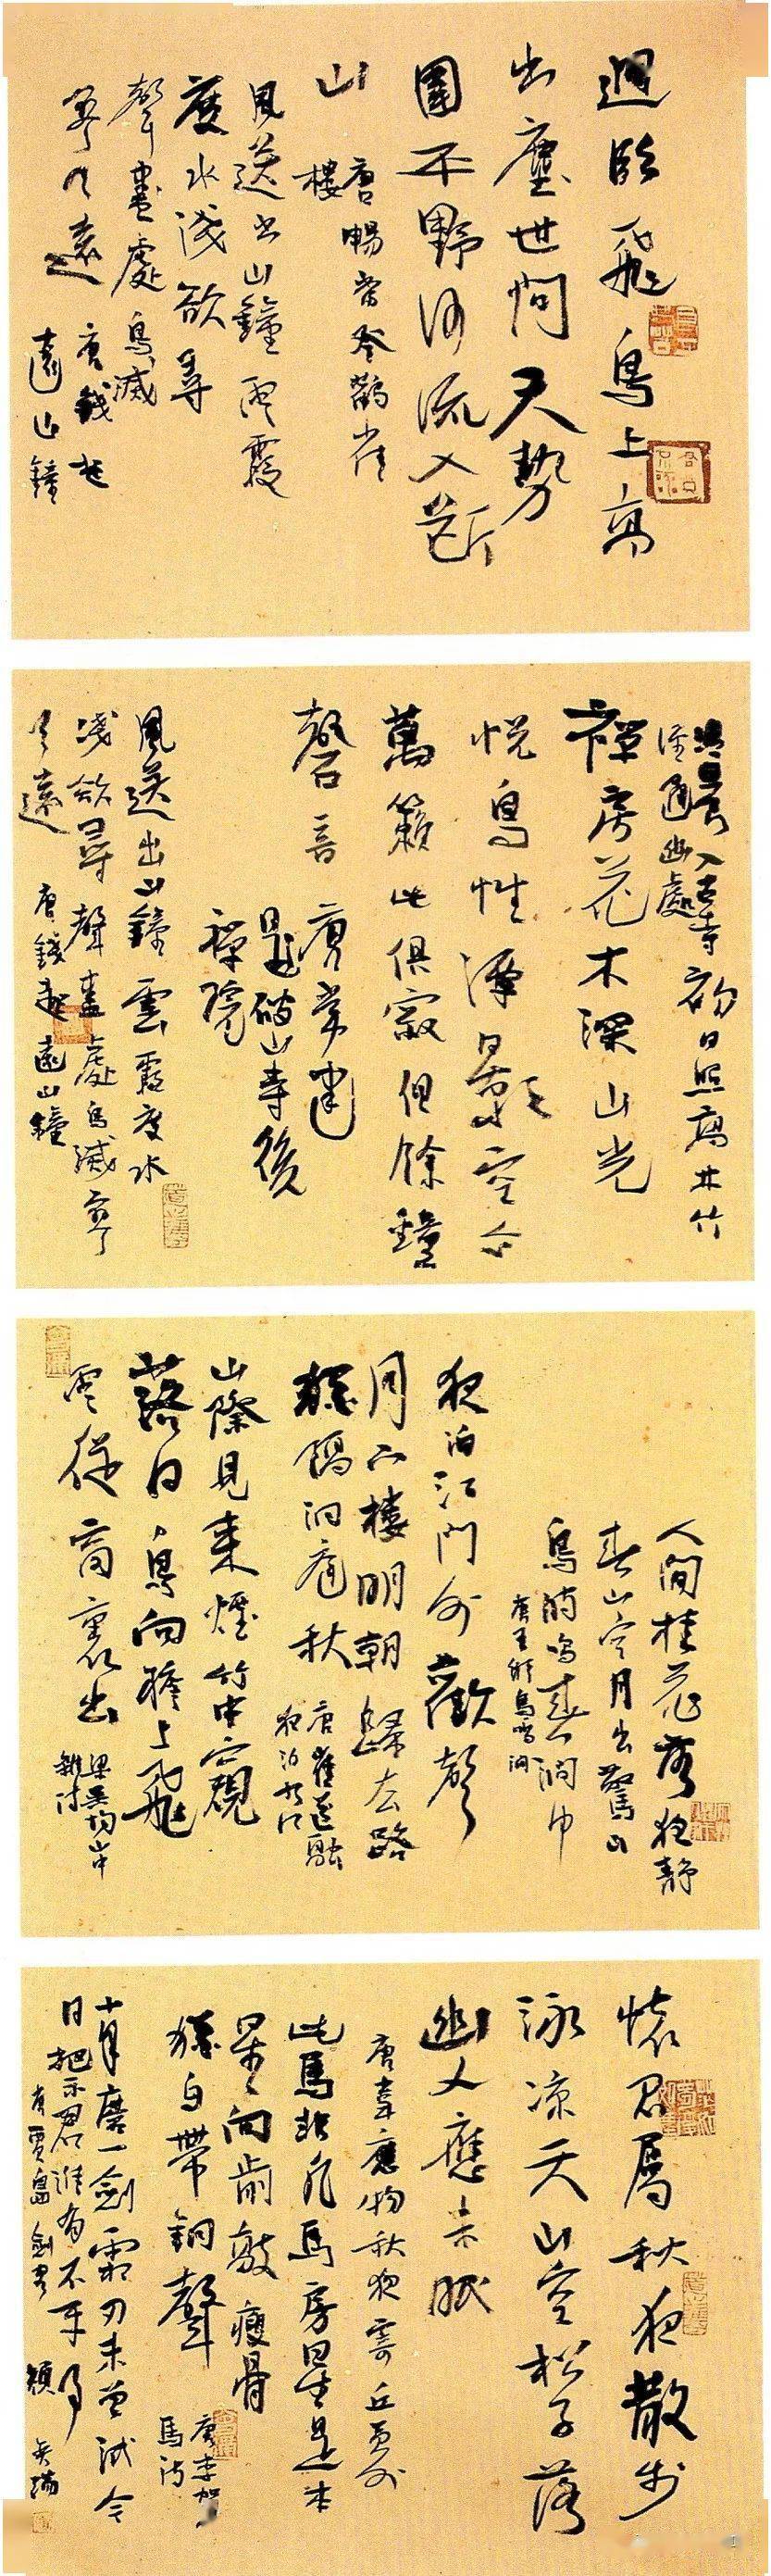 迥臨飛鳥上高
出塵世間天勢
圍平野河流入斷
山
唐暢當登鸛雀
樓
風送出山鐘雲霞
度水淺欲尋
聲盡處鳥滅
寥天遠
唐錢起
遠山鐘
清晨入古寺初日照高林竹
徑通幽處
禪房花木深山光
悅鳥性潭影空人
萬籟此俱寂但餘鐘
磬音
唐常建
題破山寺後
禪院
風送出山鐘雲霞度水
淺欲尋聲盡處鳥滅寥
天遠
唐錢起遠山鐘
人閒桂花落夜靜
春山空月出驚山
鳥時鳴春澗中
唐王維鳥鳴澗
夜泊江門外歡聲
月裏樓明朝歸去路
猶隔洞庭秋
唐崔道融
夜泊九江
山際見來煙竹中窺
落日鳥向檐上飛
雲從窗裏出
梁吳均山中
雜詩
懷君屬秋夜散步
詠涼天山空松子落
幽人應未眠
唐韋應物秋夜寄丘員外
此馬非凡馬房星是本
星向前敲瘦骨
猶自帶銅聲
唐李賀
馬詩
十年磨一劍霜刃未曾試今
日把示君誰有不平事
唐賈島劍客